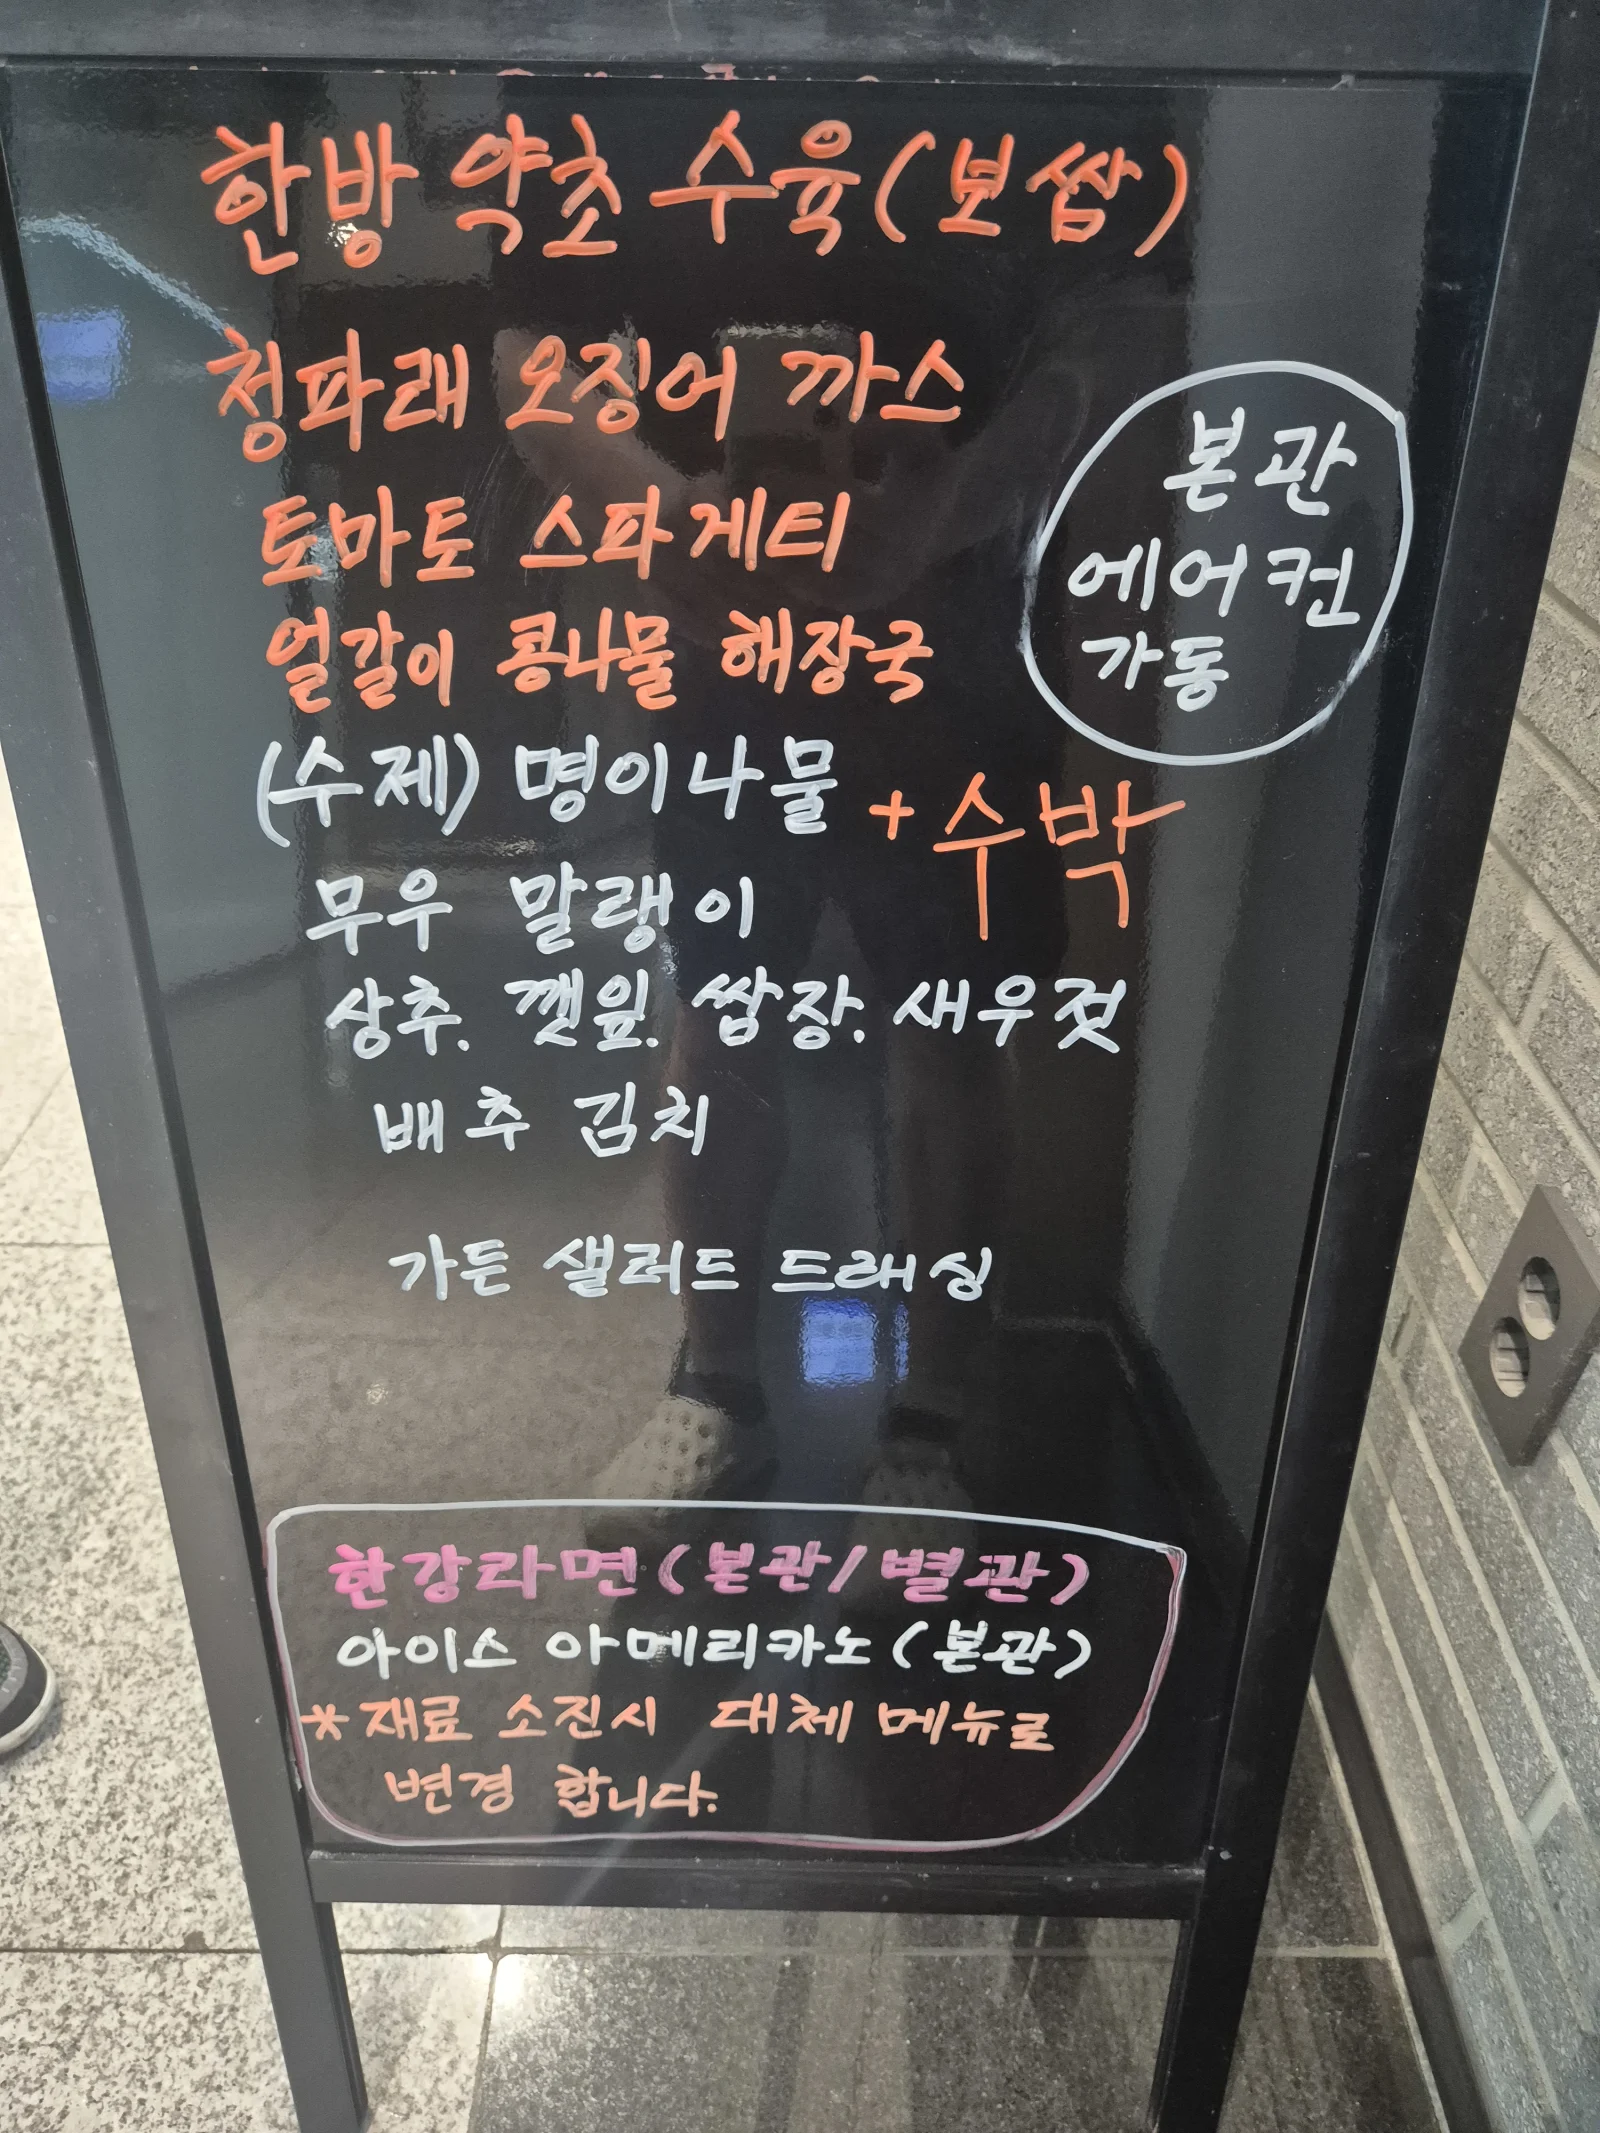 한방 약초 수육(보쌈)
청파래 오징어 까스
토마토 스파게티
얼갈이 콩나물 해장국
본관
에어컨
가동
(수제) 명이나물 + 수박
무우 말랭이
상추. 깻잎. 쌈장. 새우젓
배추 김치
가든 샐러드 드래싱
한강라면(본관/별관)
아이스 아메리카노(본관)
*재료 소진시 대체 메뉴로
변경 합니다.